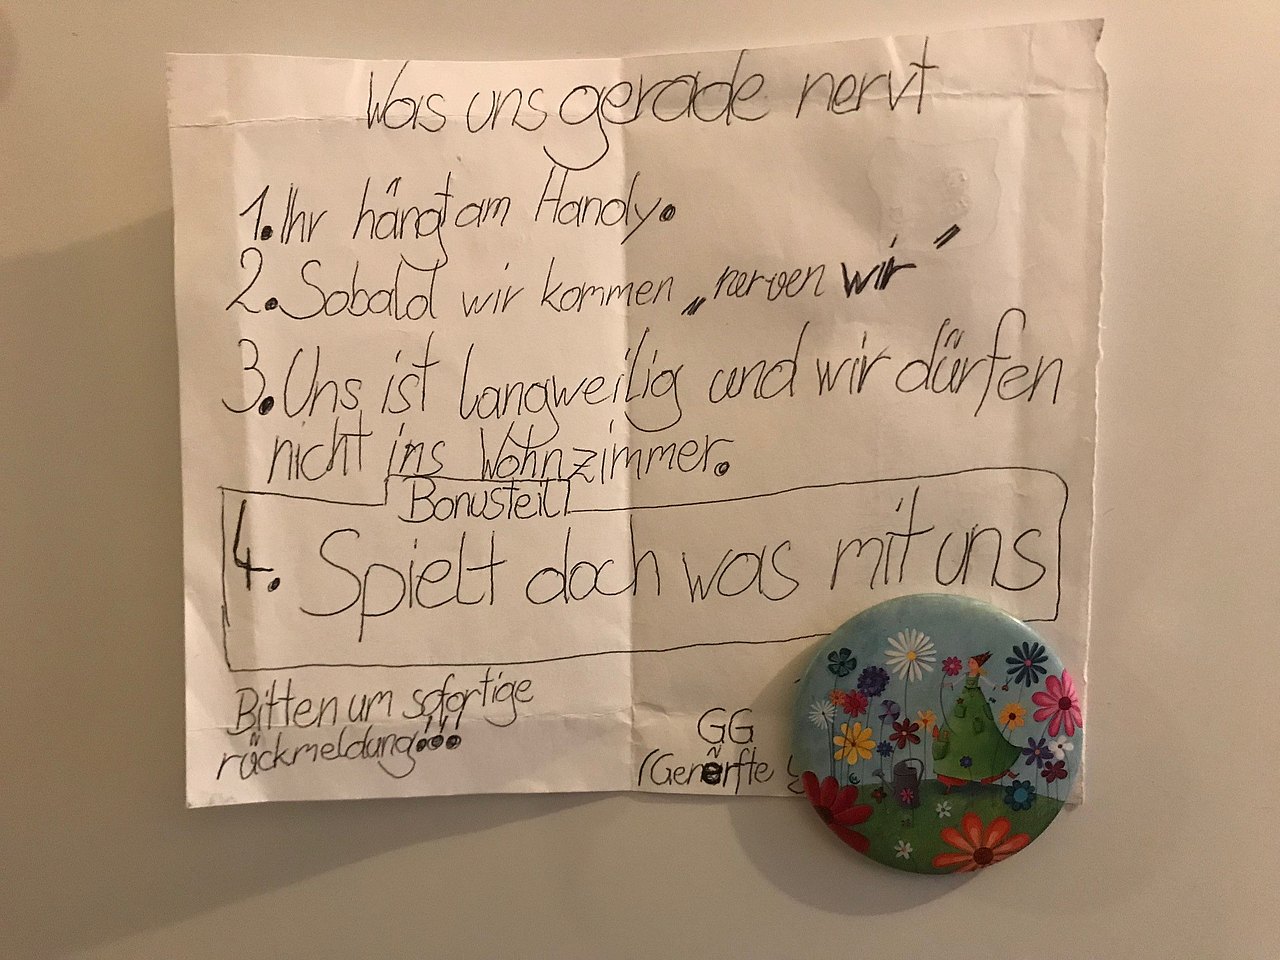 Was uns gerade nervt
1. Ihr hängt am Handy.
2. Sobald wir kommen „nerven wir"
3. Uns ist langweilig und wir dürfen
nicht ins Wohnzimmer.
Bonusteil
4. Spielt doch was mit uns
Bitten um sofortige
rückmeldung!!!
GG
(Generfte